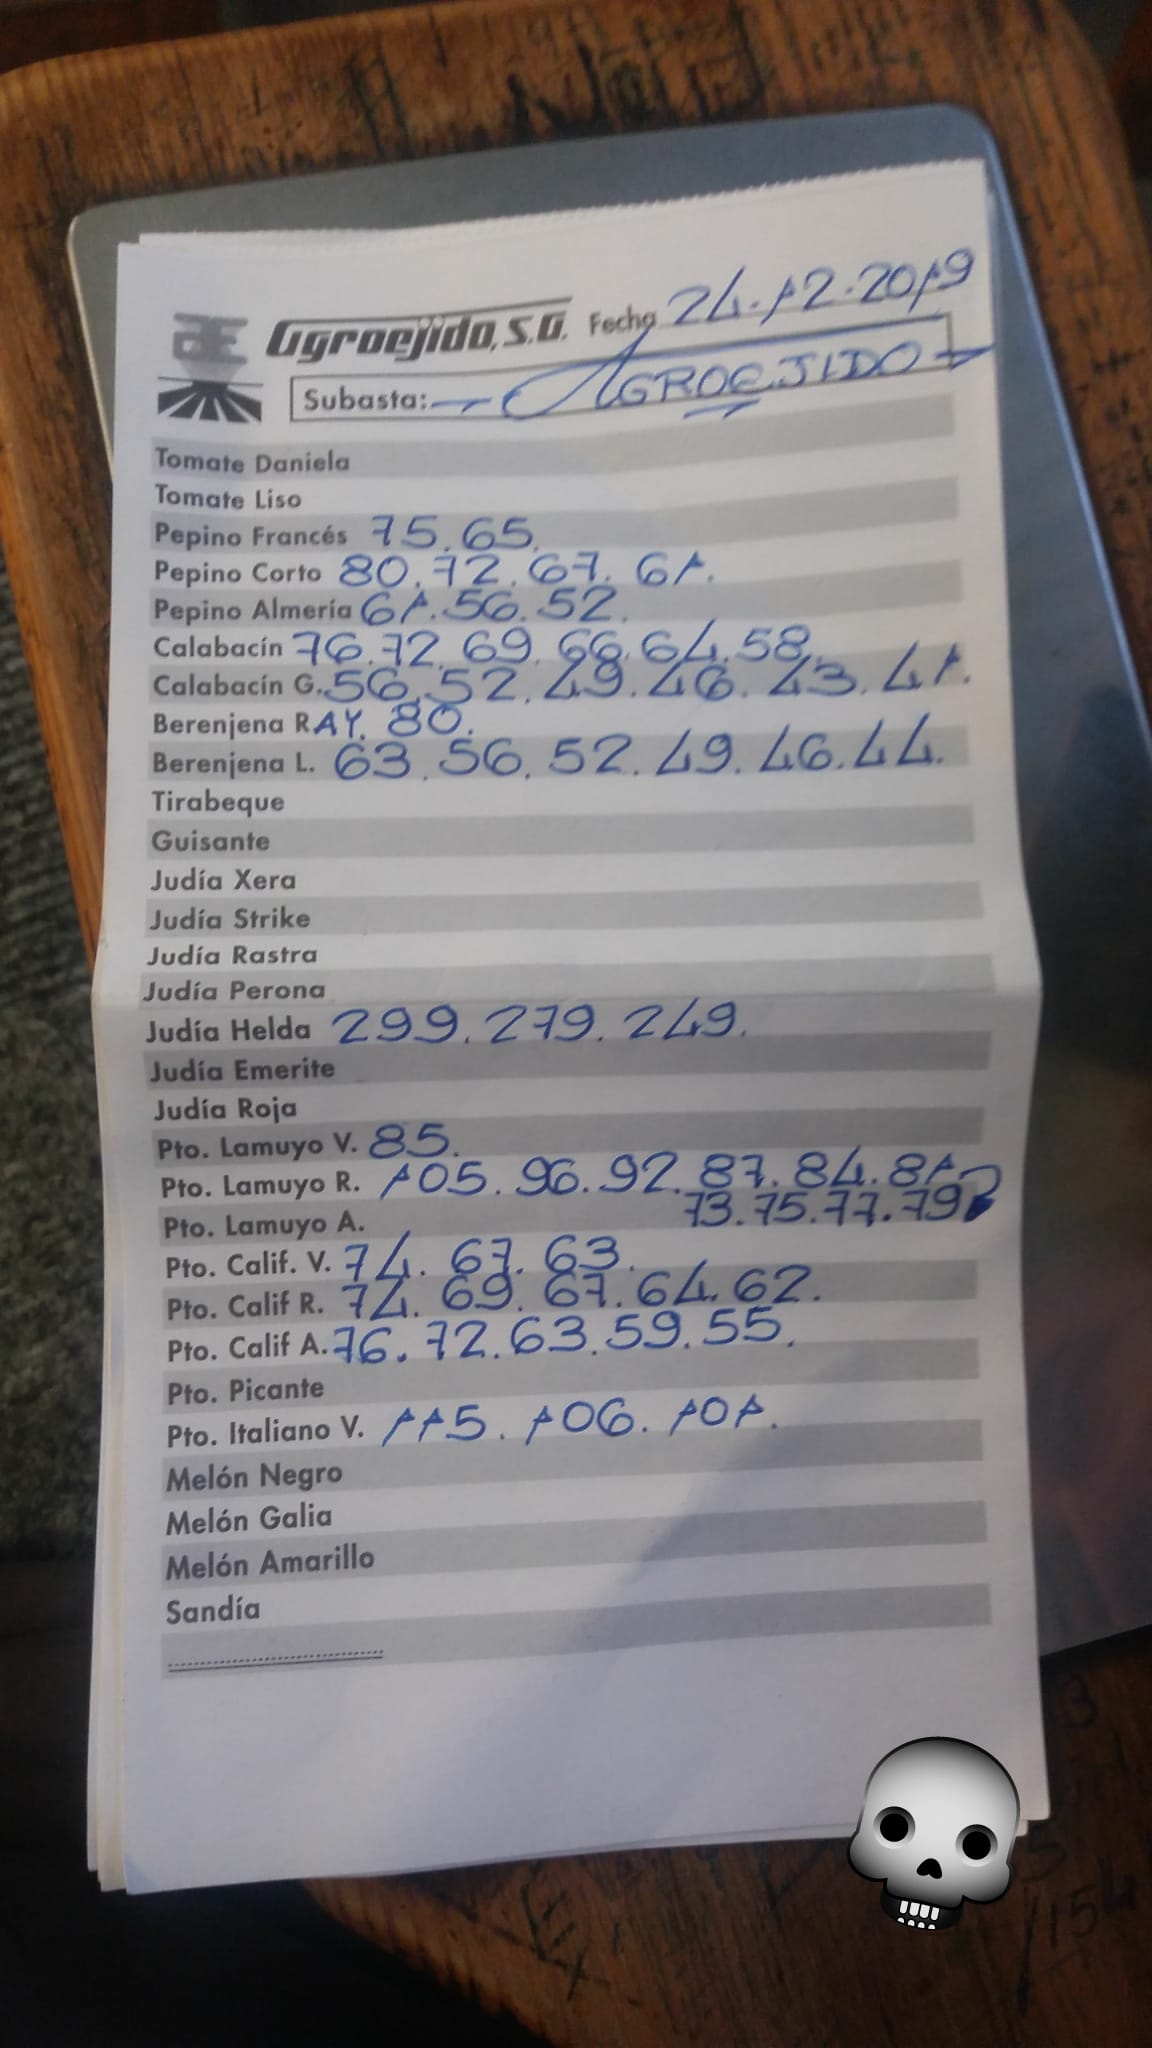 Agroejido, S.A. Fecha 24.12.2019
Subasta: AGROEJIDO
Tomate Daniela
Tomate Liso
Pepino Francés 75.65.
Pepino Corto 80.72.67.61.
Pepino Almería 61.56.52.
Calabacín 76.72.69.66.64.58.
Calabacín G. 56.52.49.46.43.41.
Berenjena RAY. 80.
Berenjena L. 63.56.52.49.46.44.
Tirabeque
Guisante
Judía Xera
Judía Strike
Judía Rastra
Judía Perona
Judía Helda 299.279.249.
Judía Emerite
Judía Roja
Pto. Lamuyo V. 85.
Pto. Lamuyo R. 105.96.92.87.84.81
73.75.77.79
Pto. Lamuyo A.
Pto. Calif. V. 74.67.63.
Pto. Calif R. 74.69.67.64.62.
Pto. Calif A. 76.72.63.59.55.
Pto. Picante
Pto. Italiano V. 115.106.101.
Melón Negro
Melón Galia
Melón Amarillo
Sandía